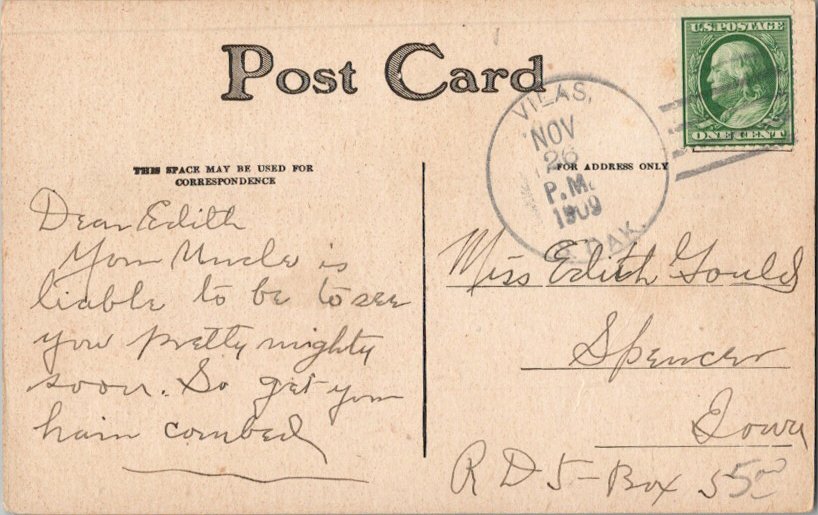 Post Card
U.S. POSTAGE
ONE CENT
VILAS,
NOV
26
P.M.
1909
S. DAK.
THIS SPACE MAY BE USED FOR
CORRESPONDENCE
FOR ADDRESS ONLY
Dear Edith
Your Uncle is
liable to be to see
you pretty mighty
soon. So get your
hair combed
Miss Edith Gould
Spencer
Iowa
R D 5 - Box 5